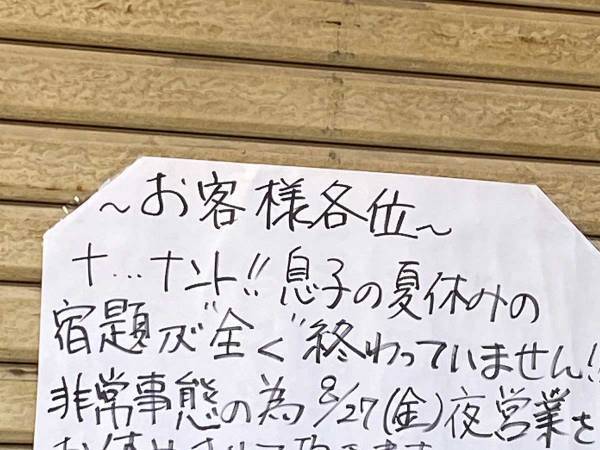 ～お客様各位～
ナ…ナント!!息子の夏休みの
宿題が"全く"終わっていません!!
非常事態の為8/27(金)夜営業を